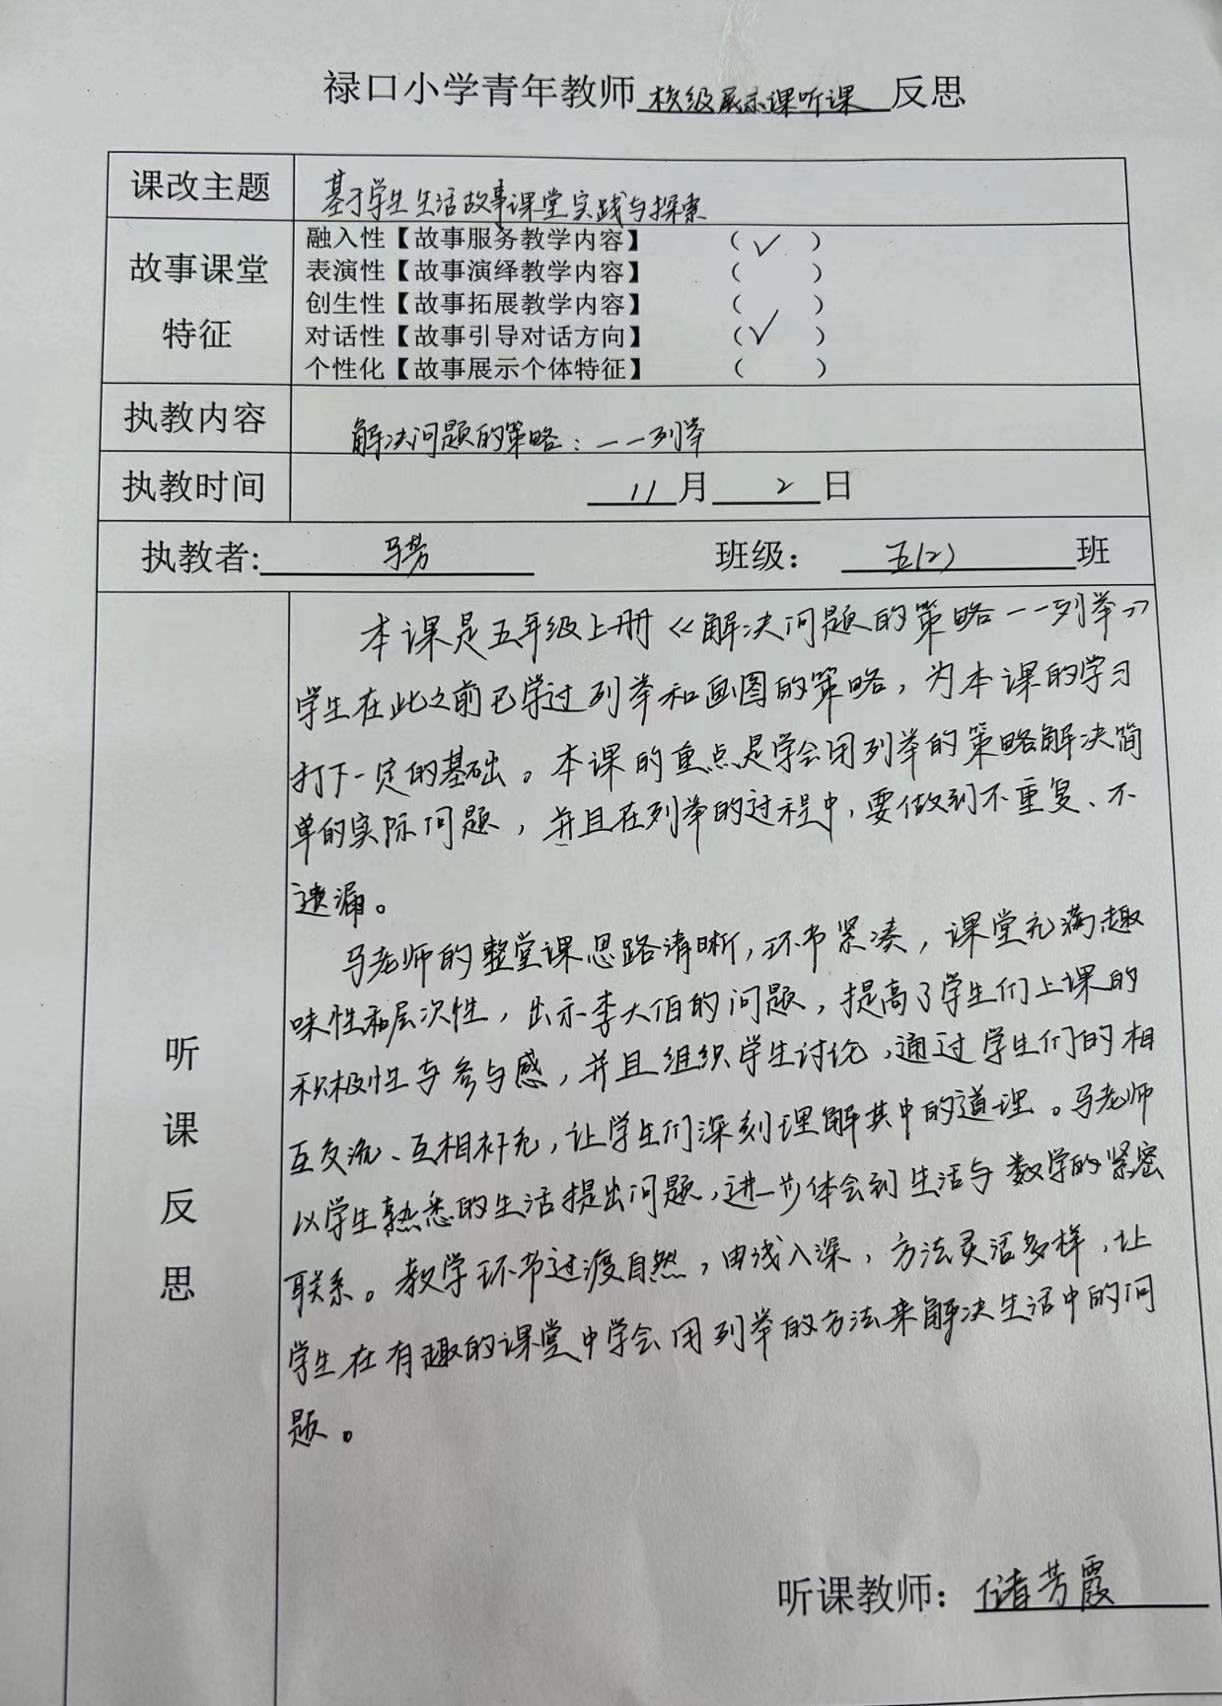 禄口小学青年教师校级展示课听课反思
课改主题 基于学生生活故事课堂实践与探索
故事课堂特征
融入性【故事服务教学内容】 (√)
表演性【故事演绎教学内容】 ( )
创生性【故事拓展教学内容】 ( )
对话性【故事引导对话方向】 (√)
个性化【故事展示个体特征】 ( )
执教内容 解决问题的策略:一一列举
执教时间 11月2日
执教者: 马芳 班级: 五(2)班
听课反思
本课是五年级上册《解决问题的策略一一列举》
学生在此之前已学过列举和画图的策略,为本课的学习
打下一定的基础。本课的重点是学会用列举的策略解决简
单的实际问题,并且在列举的过程中,要做到不重复、不
遗漏。
马老师的整堂课思路清晰,环节紧凑,课堂充满趣
味性和层次性,出示李大伯的问题,提高了学生们上课的
积极性与参与感,并且组织学生讨论,通过学生们的相
互交流、互相补充,让学生们深刻理解其中的道理。马老师
以学生熟悉的生活提出问题,进一步体会到生活与数学的紧密
联系。教学环节过渡自然,由浅入深,方法灵活多样,让
学生在有趣的课堂中学会用列举的方法来解决生活中的问
题。
听课教师: 储芳霞